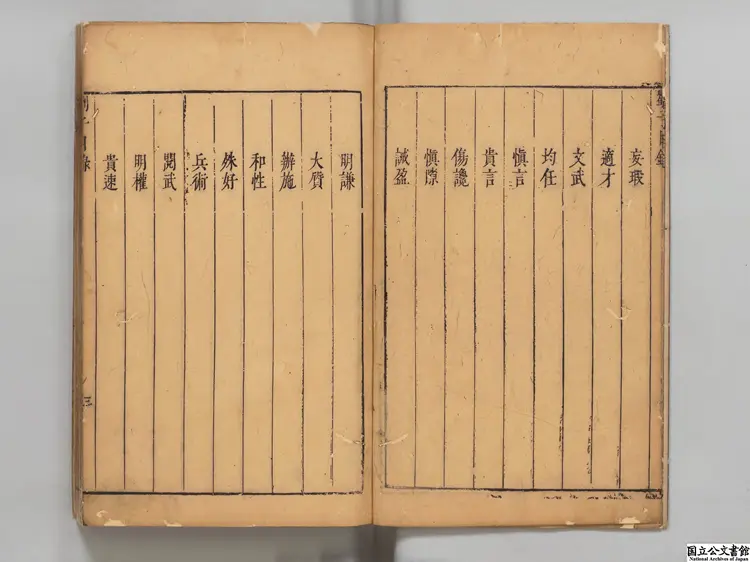 妄瑕
適才
文武
均任
慎言
貴言
傷讒
慎隟
誡盈
明謙
大質
辦施
和性
殊好
兵術
閱武
明權
貴速
三
国立公文書館
National Archives of Japan